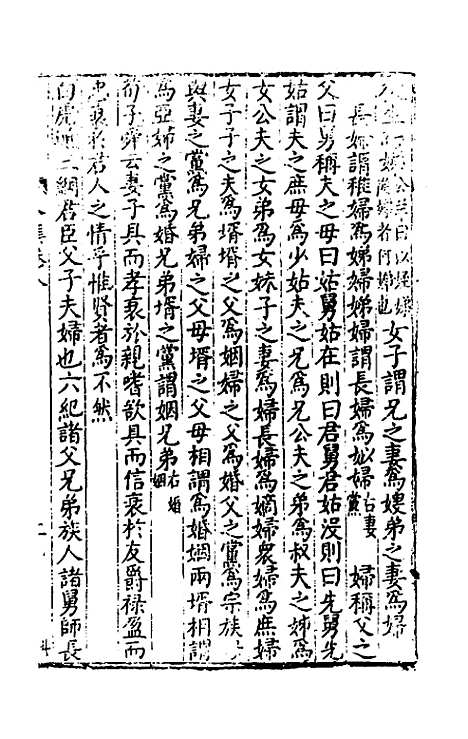 女子謂兄之妻為嫂弟之妻為婦
長婦謂稚婦為娣婦娣婦謂長婦為姒婦右妻黨　婦稱夫之
父曰舅稱夫之母曰姑舅姑在則曰君舅君姑没則曰先舅先
姑謂夫之庶母為少姑夫之兄為兄公夫之弟為叔夫之姊為
女公夫之女弟為女妹子之妻為婦長婦為嫡婦衆婦為庶婦
女子子之夫為壻壻之父為姻婦之父為婚父之黨為宗族
與妻之黨為兄弟婦之父母壻之父母相謂為婚姻兩壻相謂
為亞婦之黨為婚兄弟壻之黨謂姻兄弟右婚姻
荀子舜云妻子具而孝衰於親嗜欲具而信衰於友爵祿盈而
忠衰於君人之情乎惟賢者為不然
白虎通三綱君臣父子夫婦也六紀諸父兄弟族人諸舅師長